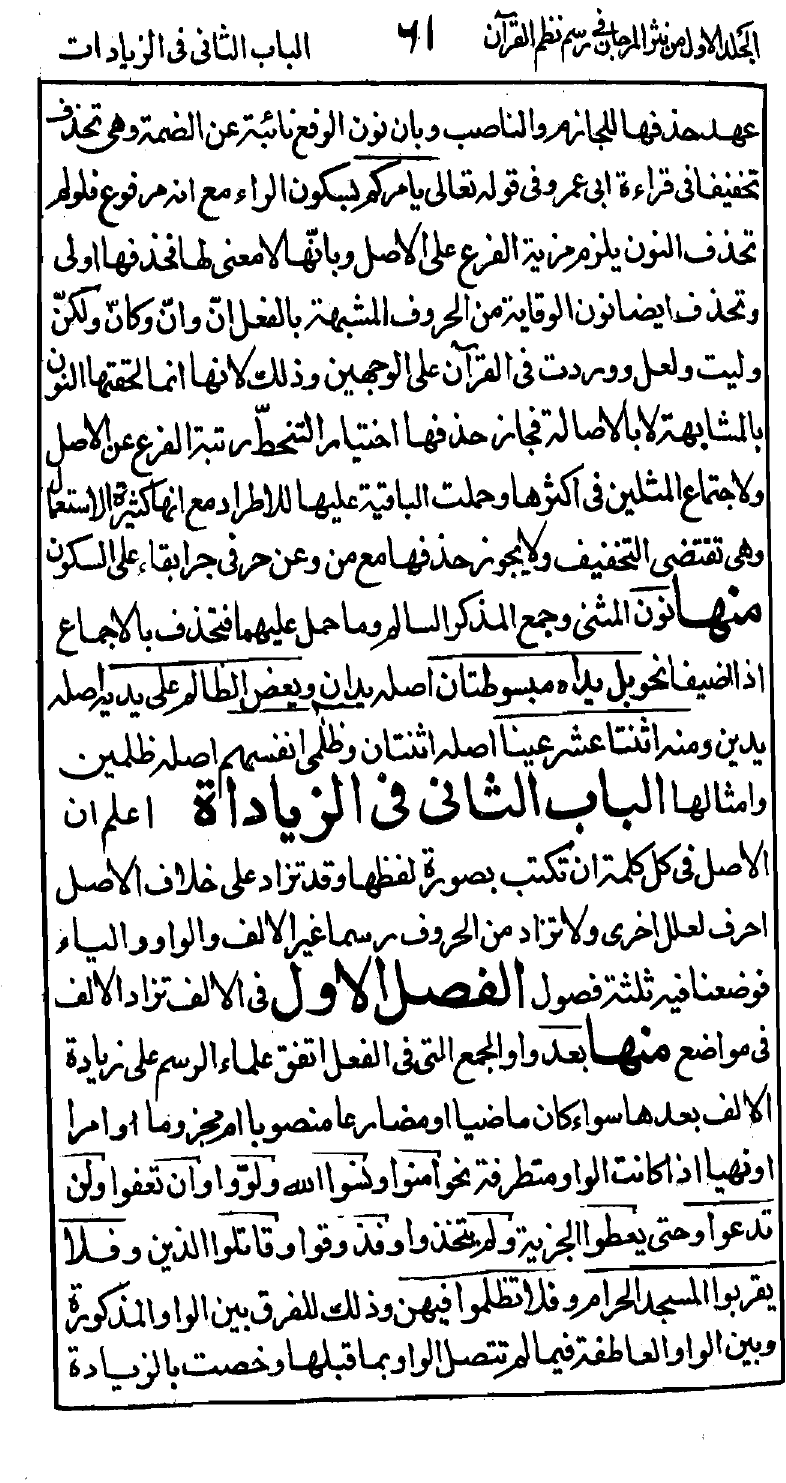 الجلد الاول من نثر المرجان في رسم نظم القرآن ٦١ الباب الثانى فى الزيادات
عهد حذفها للجازم والناصب وبان نون الرفع نائبة عن الضمة وهى تحذف
تخفيفا فى قراءة ابى عمرو فى قوله تعالى يامركم بسكون الراء مع انه مرفوع فلولم
تحذف النون يلزم مزية الفرع على الاصل وبانّها لا معنى لها فحذفها اولى
وتحذف ايضا نون الوقاية من الحروف المشبهة بالفعل انّ وانّ وكانّ ولكنّ
وليت ولعل ووردت فى القرآن على الوجهين وذلك لانها انما لحقتها النون
بالمشابهة لا بالاصالة فجاز حذفها اختيارا لتنحطّ رتبة الفرع عن الاصل
ولاجتماع المثلين فى اكثرها وحملت الباقية عليها للاطراد مع انها كثيرة الاستعمال
وهى تقتضى التخفيف ولا يجوز حذفها مع من وعن حرفى جر ابقاء على السكون
منها نون المثنى وجمع المذكر السالم وما حمل عليهما فتحذف بالاجماع
اذا اضيفا نحو بل يداه مبسوطتان اصله يدان ويعض الظالم على يديه اصله
يدين ومنه اثنتا عشر عينا اصله اثنتان وظلمى انفسهم اصله ظلمين
وامثالها الباب الثانى فى الزيادة اعلم ان
الاصل فى كل كلمة ان تكتب بصورة لفظها وقد تزاد على خلاف الاصل
احرف لعلل اخرى ولا تزاد من الحروف رسما غير الالف والواو والياء
فوضعنا فيه ثلثة فصول الفصل الاول فى الالف تزاد الالف
فى مواضع منها بعد واو الجمع التى فى الفعل اتفق علماء الرسم على زيادة
الالف بعدها سواء كان ماضيا او مضارعا منصوبا ام مجزوما او امرا
او نهيا اذا كانت الواو متطرفة نحو امنوا ونسوا الله ولوّوا وان تعفوا ولن
تدعوا وحتى يعطوا الجزية ولم يتخذوا وفذوقوا وقاتلوا الذين وفلا
يقربوا المسجد الحرام وفلا تظلموا فيهن وذلك للفرق بين الواو المذكورة
وبين الواو العاطفة فيما لم تتصل الواو بما قبلها وخصت بالزيادة